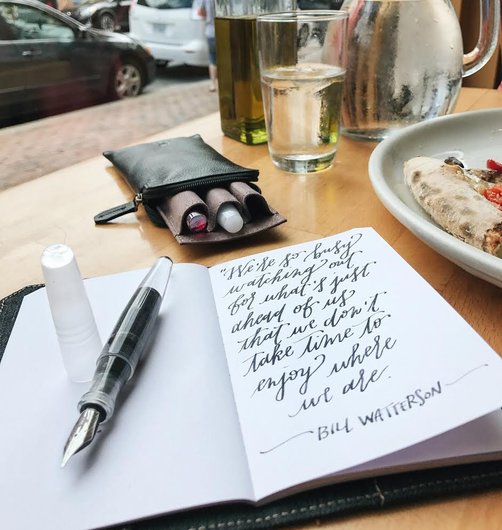 "We're so busy
watching out
for what's just
ahead of us
that we don't
take time to
enjoy where
we are.
— BILL WATTERSON —